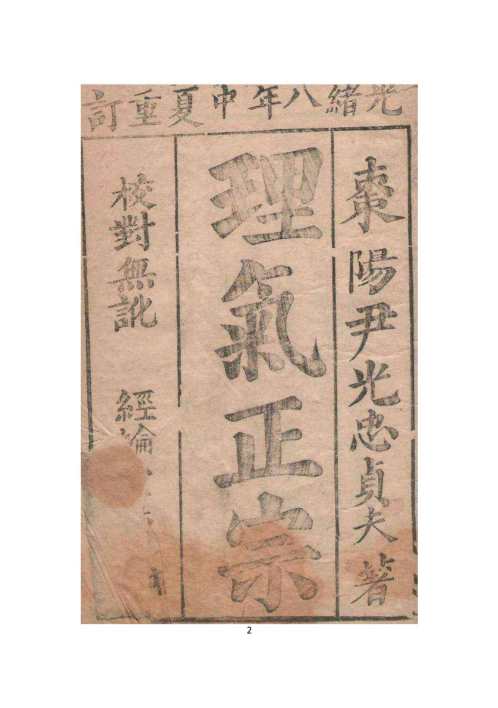 光緒八年中夏重訂
棗陽尹光忠貞夫著
理氣正宗
校對無訛 經綸
2